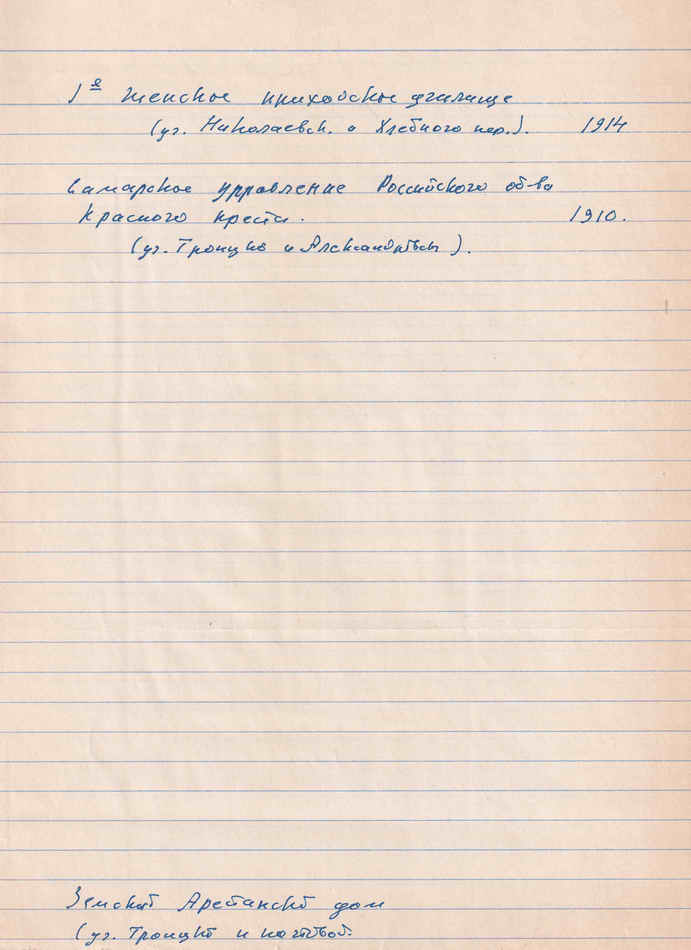 1я женское приходское училище
(уг. Николаевск. и Хлебного пер.). 1914
Самарское управление Российского об-ва
Красного Креста. 1910.
(уг. Троицко и Александровск).
Земский Арестанский дом
(уг. Троицко и почтовой.